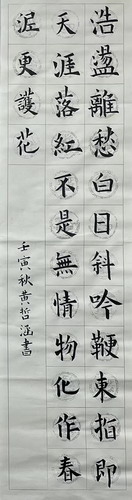 浩蕩離愁白日斜吟鞭東指即
天涯落紅不是無情物化作春
泥更護花
壬寅秋黃哲涵書